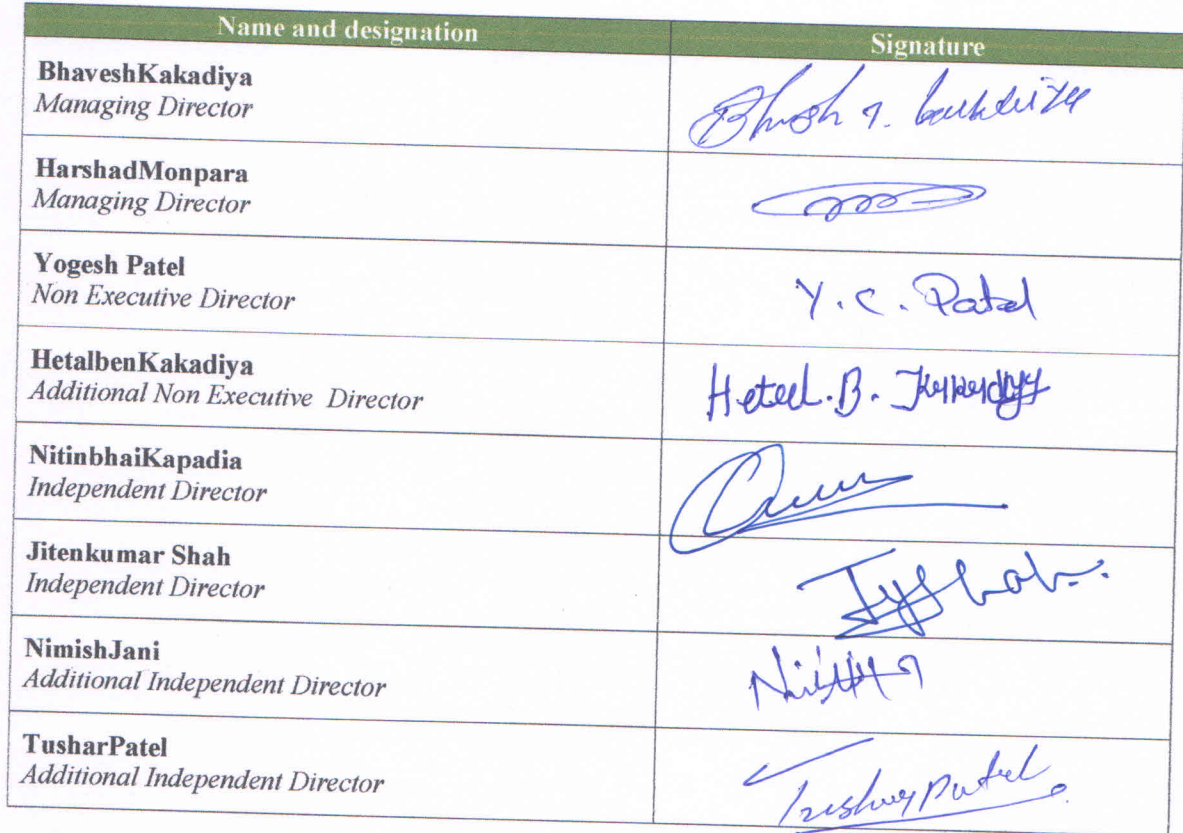 Name and designation
Signature
BhaveshKakadiya
Managing Director
HarshadMonpara
Managing Director
Yogesh Patel
Non Executive Director
Y. C. Patel
HetalbenKakadiya
Additional Non Executive Director
Hetal. B. Kakadiya
NitinbhaiKapadia
Independent Director
Jitenkumar Shah
Independent Director
NimishJani
Additional Independent Director
TusharPatel
Additional Independent Director
Tushar Patel